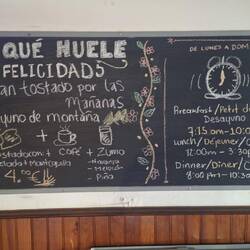 QUÉ HUELE
FELICIDAD5
an tostado por las
Mañanas
yuno de montaña
+ +
ostadacon + Café + Zumo
elada + Mantequilla
- Naranja
- Melocotón
- Piña
4.00€
DE LUNES A DOM
Breakfast/Petit d
Desayuno
7:15 am - 10:0
Lunch/Déjeuner/C
12:00m - 3:30p
Dinner/Dîner/C
8:00pm - 10:30